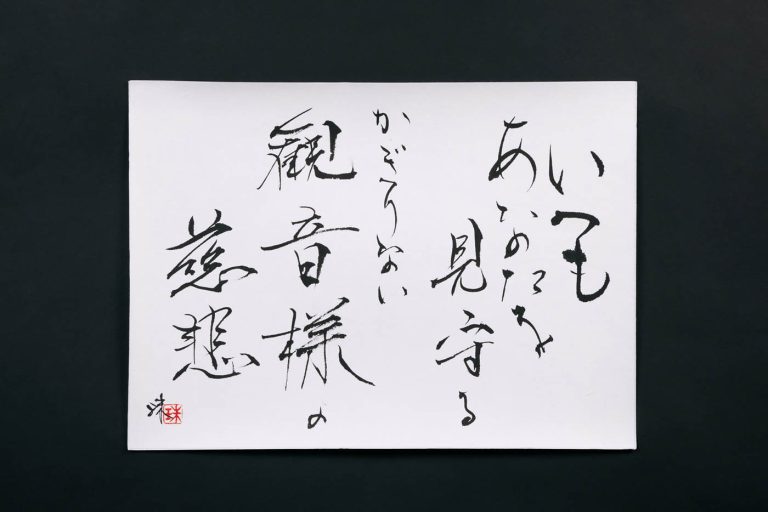 いつも
あなたを
見守る
かぎりない
観音様の
慈悲
珠
珠